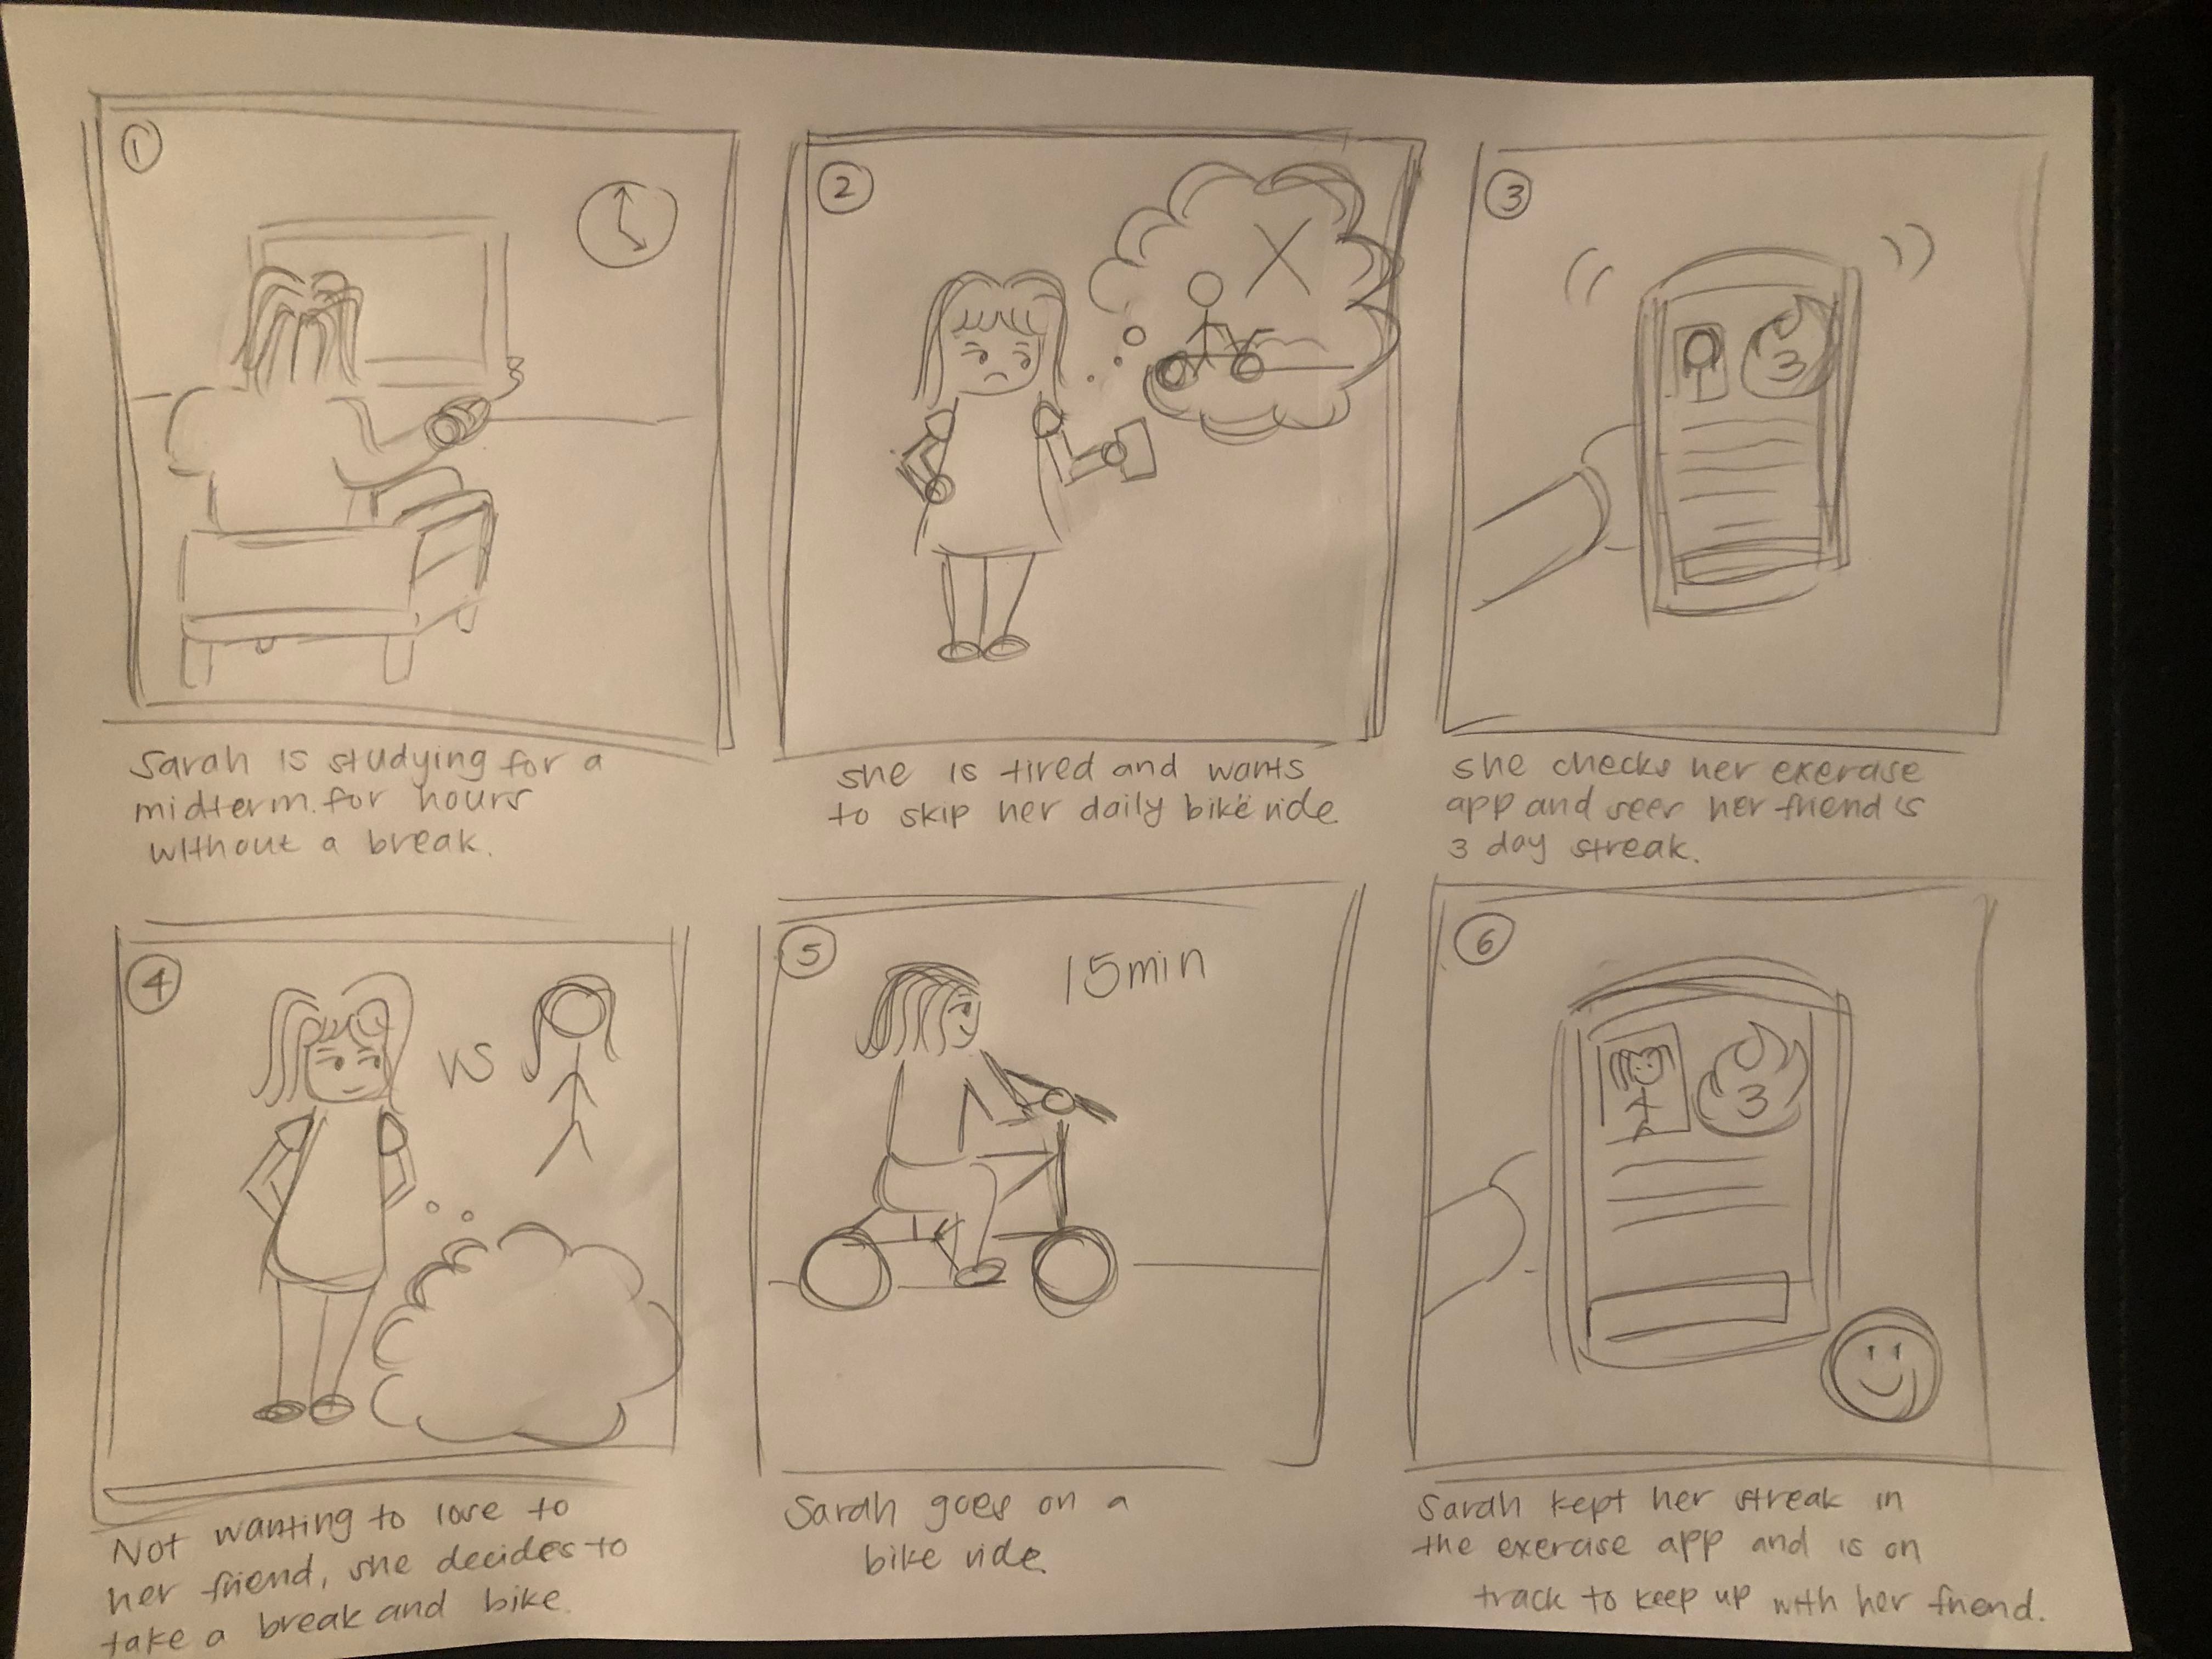 1
2
3
3
Sarah is studying for a
midterm for hours
without a break.
she is tired and wants
to skip her daily bike ride
she checks her exercise
app and sees her friend's
3 day streak.
4
VS
5
15min
6
3
Not wanting to lose to
her friend, she decides to
take a break and bike.
Sarah goes on a
bike ride.
Sarah kept her streak in
the exercise app and is on
track to keep up with her friend.